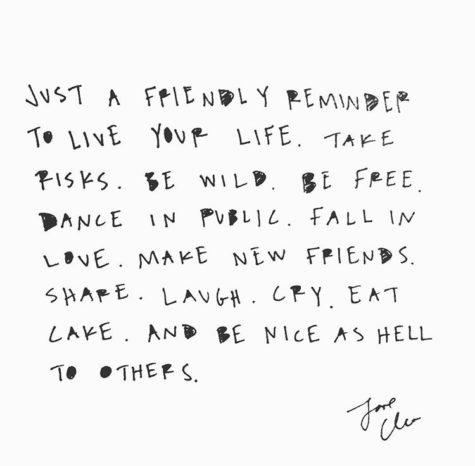 JUST A FRIENDLY REMINDER
TO LIVE YOUR LIFE. TAKE
RISKS. BE WILD. BE FREE.
DANCE IN PUBLIC. FALL IN
LOVE. MAKE NEW FRIENDS.
SHARE. LAUGH. CRY. EAT
CAKE. AND BE NICE AS HELL
TO OTHERS.
love